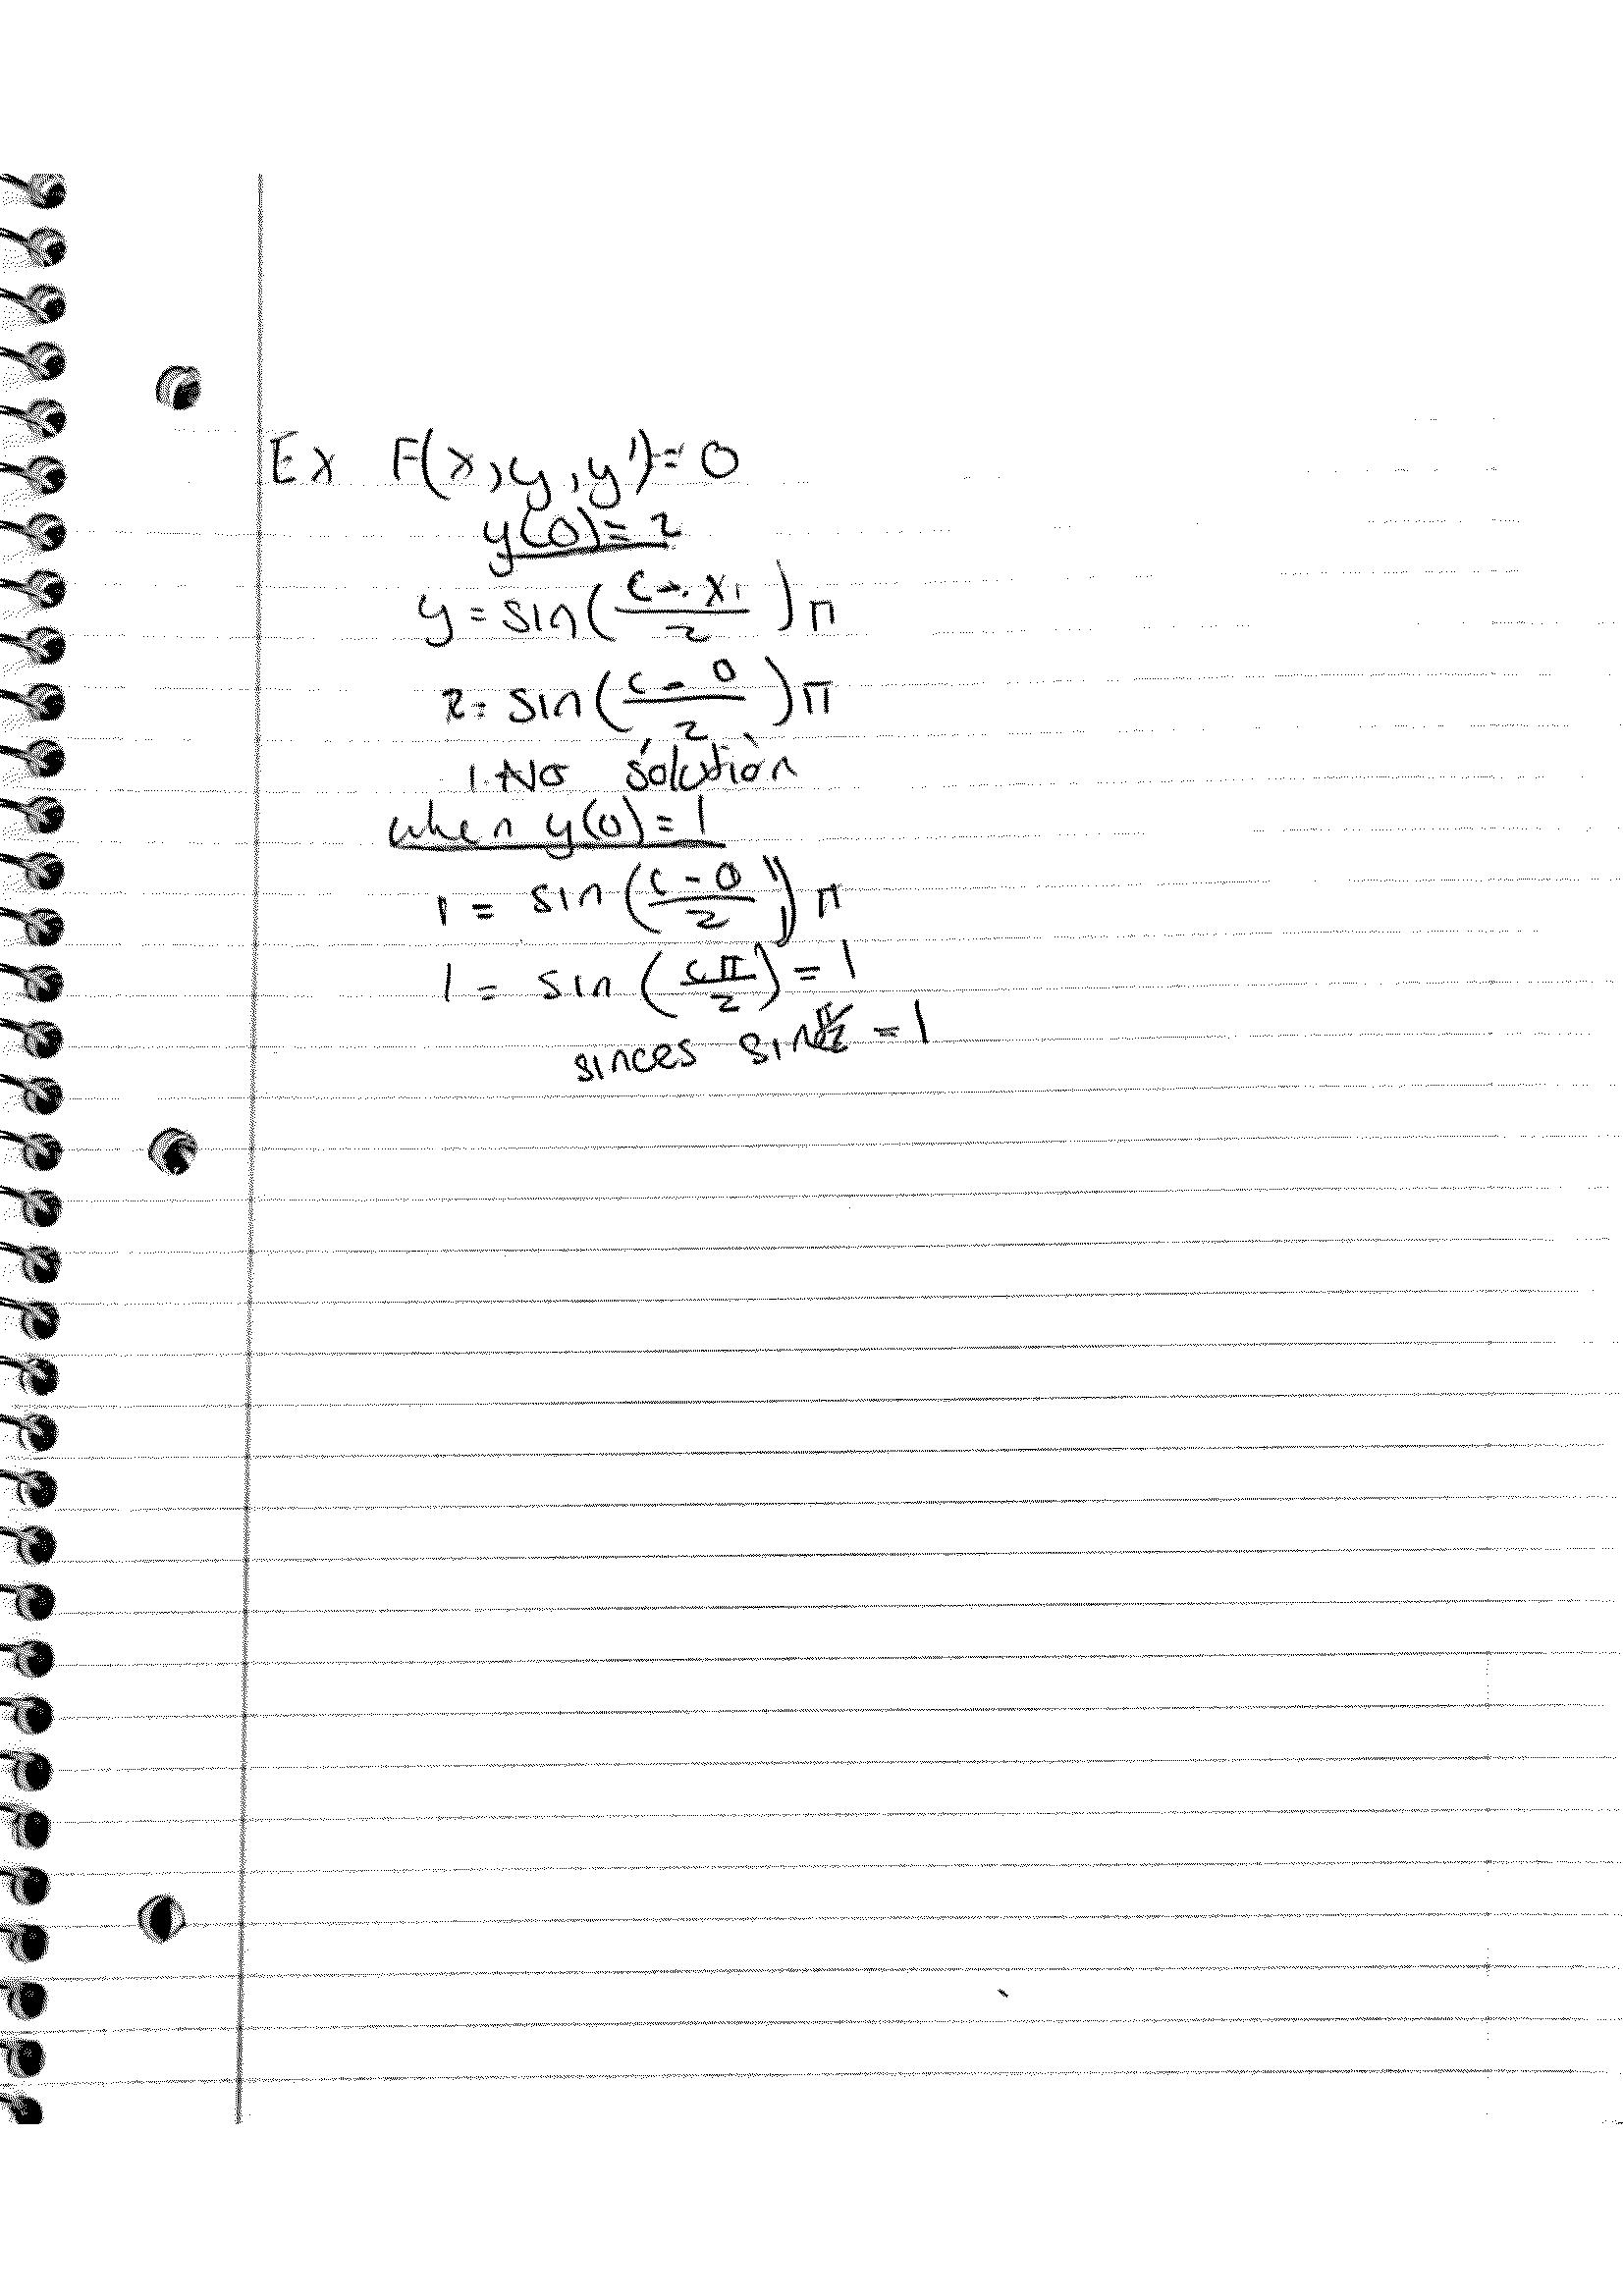 Ex F(x, y, y') = 0
y(0) = 2
y = sin((c - x)/2)π
2 = sin((c - 0)/2)π
No solution
when y(0) = 1
1 = sin((c - 0)/2)π
1 = sin(cπ/2) = 1
sinces sin π/2 = 1